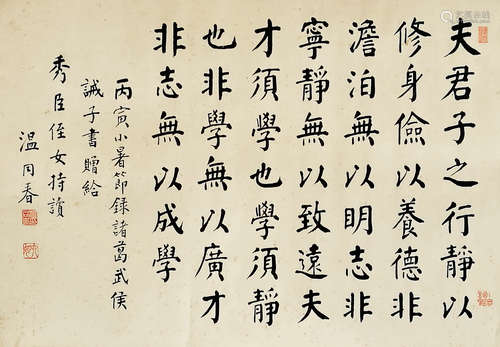 夫君子之行靜以
修身儉以養德非
澹泊無以明志非
寧靜無以致遠夫
才須學也學須靜
也非學無以廣才
非志無以成學
丙寅小暑節錄諸葛武侯
誡子書贈給
秀臣侄女持讀
溫同春